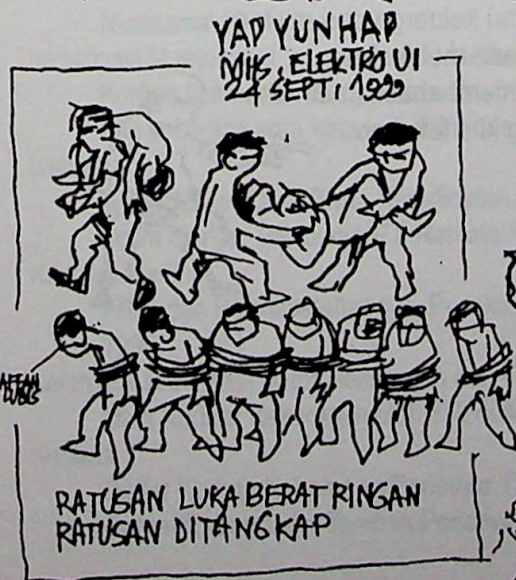 YAP YUN HAP
MHS. ELEKTRO UI
24 SEPT, 1999
RATUSAN LUKA BERAT RINGAN
RATUSAN DITANGKAP